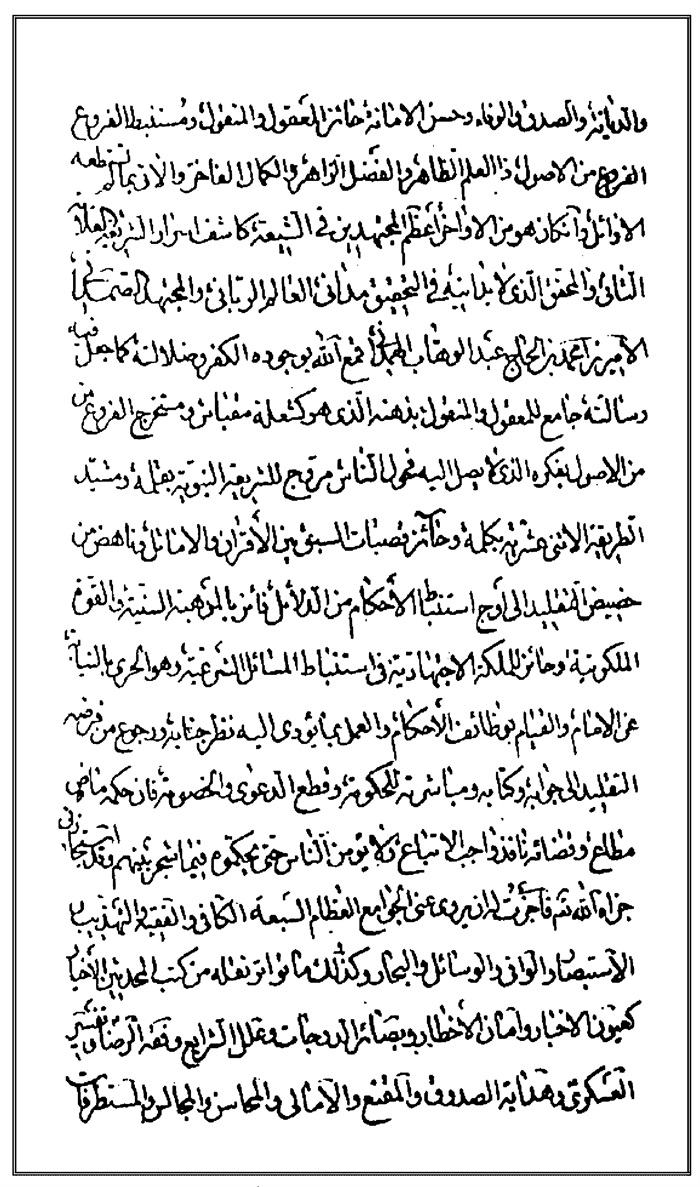 والديانة والصدق والوفاء وحسن الامانة حائز المعقول والمنقول ومستنبط الفروع
الفروع من الاصول ذا العلم الظاهر والفضل الزاهر والكمال الفاخر والآتي بما لم تستطعه
الاوائل وان كان هو من الاواخر أعظم المجتهدين في الشيعة كاشف اسرار الشريعة
الثاني والمحقق الذي لا يدانيه في التحقيق مداني العالم الرباني والمجتهد الصمداني
الاميرزا محمد بن الحاج عبد الوهاب الهمداني قمع الله بوجوده الكفر وضلالته كما جعل فيه
رسالته جامع للمعقول والمنقول بذهنه الذي هو كشعلة مقباس ومستخرج الفروع من
من الاصول بفكره الذي لا يصل اليه فحول الناس مروج للشريعة النبوية بقلمه ومشيد
الطريقة الاثنى عشرية بكلمه وحائز قصبات السبق بين الأقران والاماثل وناهض من
حضيض التقليد الى أوج استنباط الأحكام من الدلائل فائز بالموهبة السنية والقوة
الملكوتية وحائز للملكة الاجتهادية في استنباط المسائل الشرعية وهو الحري بالنيابة
عن الامام والقيام بوظائف الأحكام والعمل بما يؤدي اليه نظر جنابه ورجوع من فرضه
التقليد الى جوابه وكتابه ومباشرته للحكومة وقطع الدعوى والخصومة فان حكمه ماض
مطاع وقضائه نافذ واجب الاتباع ولا يؤمن الناس حتى يحكموه فيما شجر بينهم وقد استجازني
جزاه الله ثم فأجزت له ان يروي عني الجوامع العظام السبعة الكافي والفقيه والتهذيب
الاستبصار والوافي والوسائل والبحار وكذلك ما تواتر نقله من كتب المحدثين الأخيار
كعيون الاخبار وامان الأخطار وبصائر الدرجات وعلل الشرايع وفقه الرضا وتفسير
العسكري وهداية الصدوق والمقنع والامالي والمحاسن والمجالس والمستطرفات